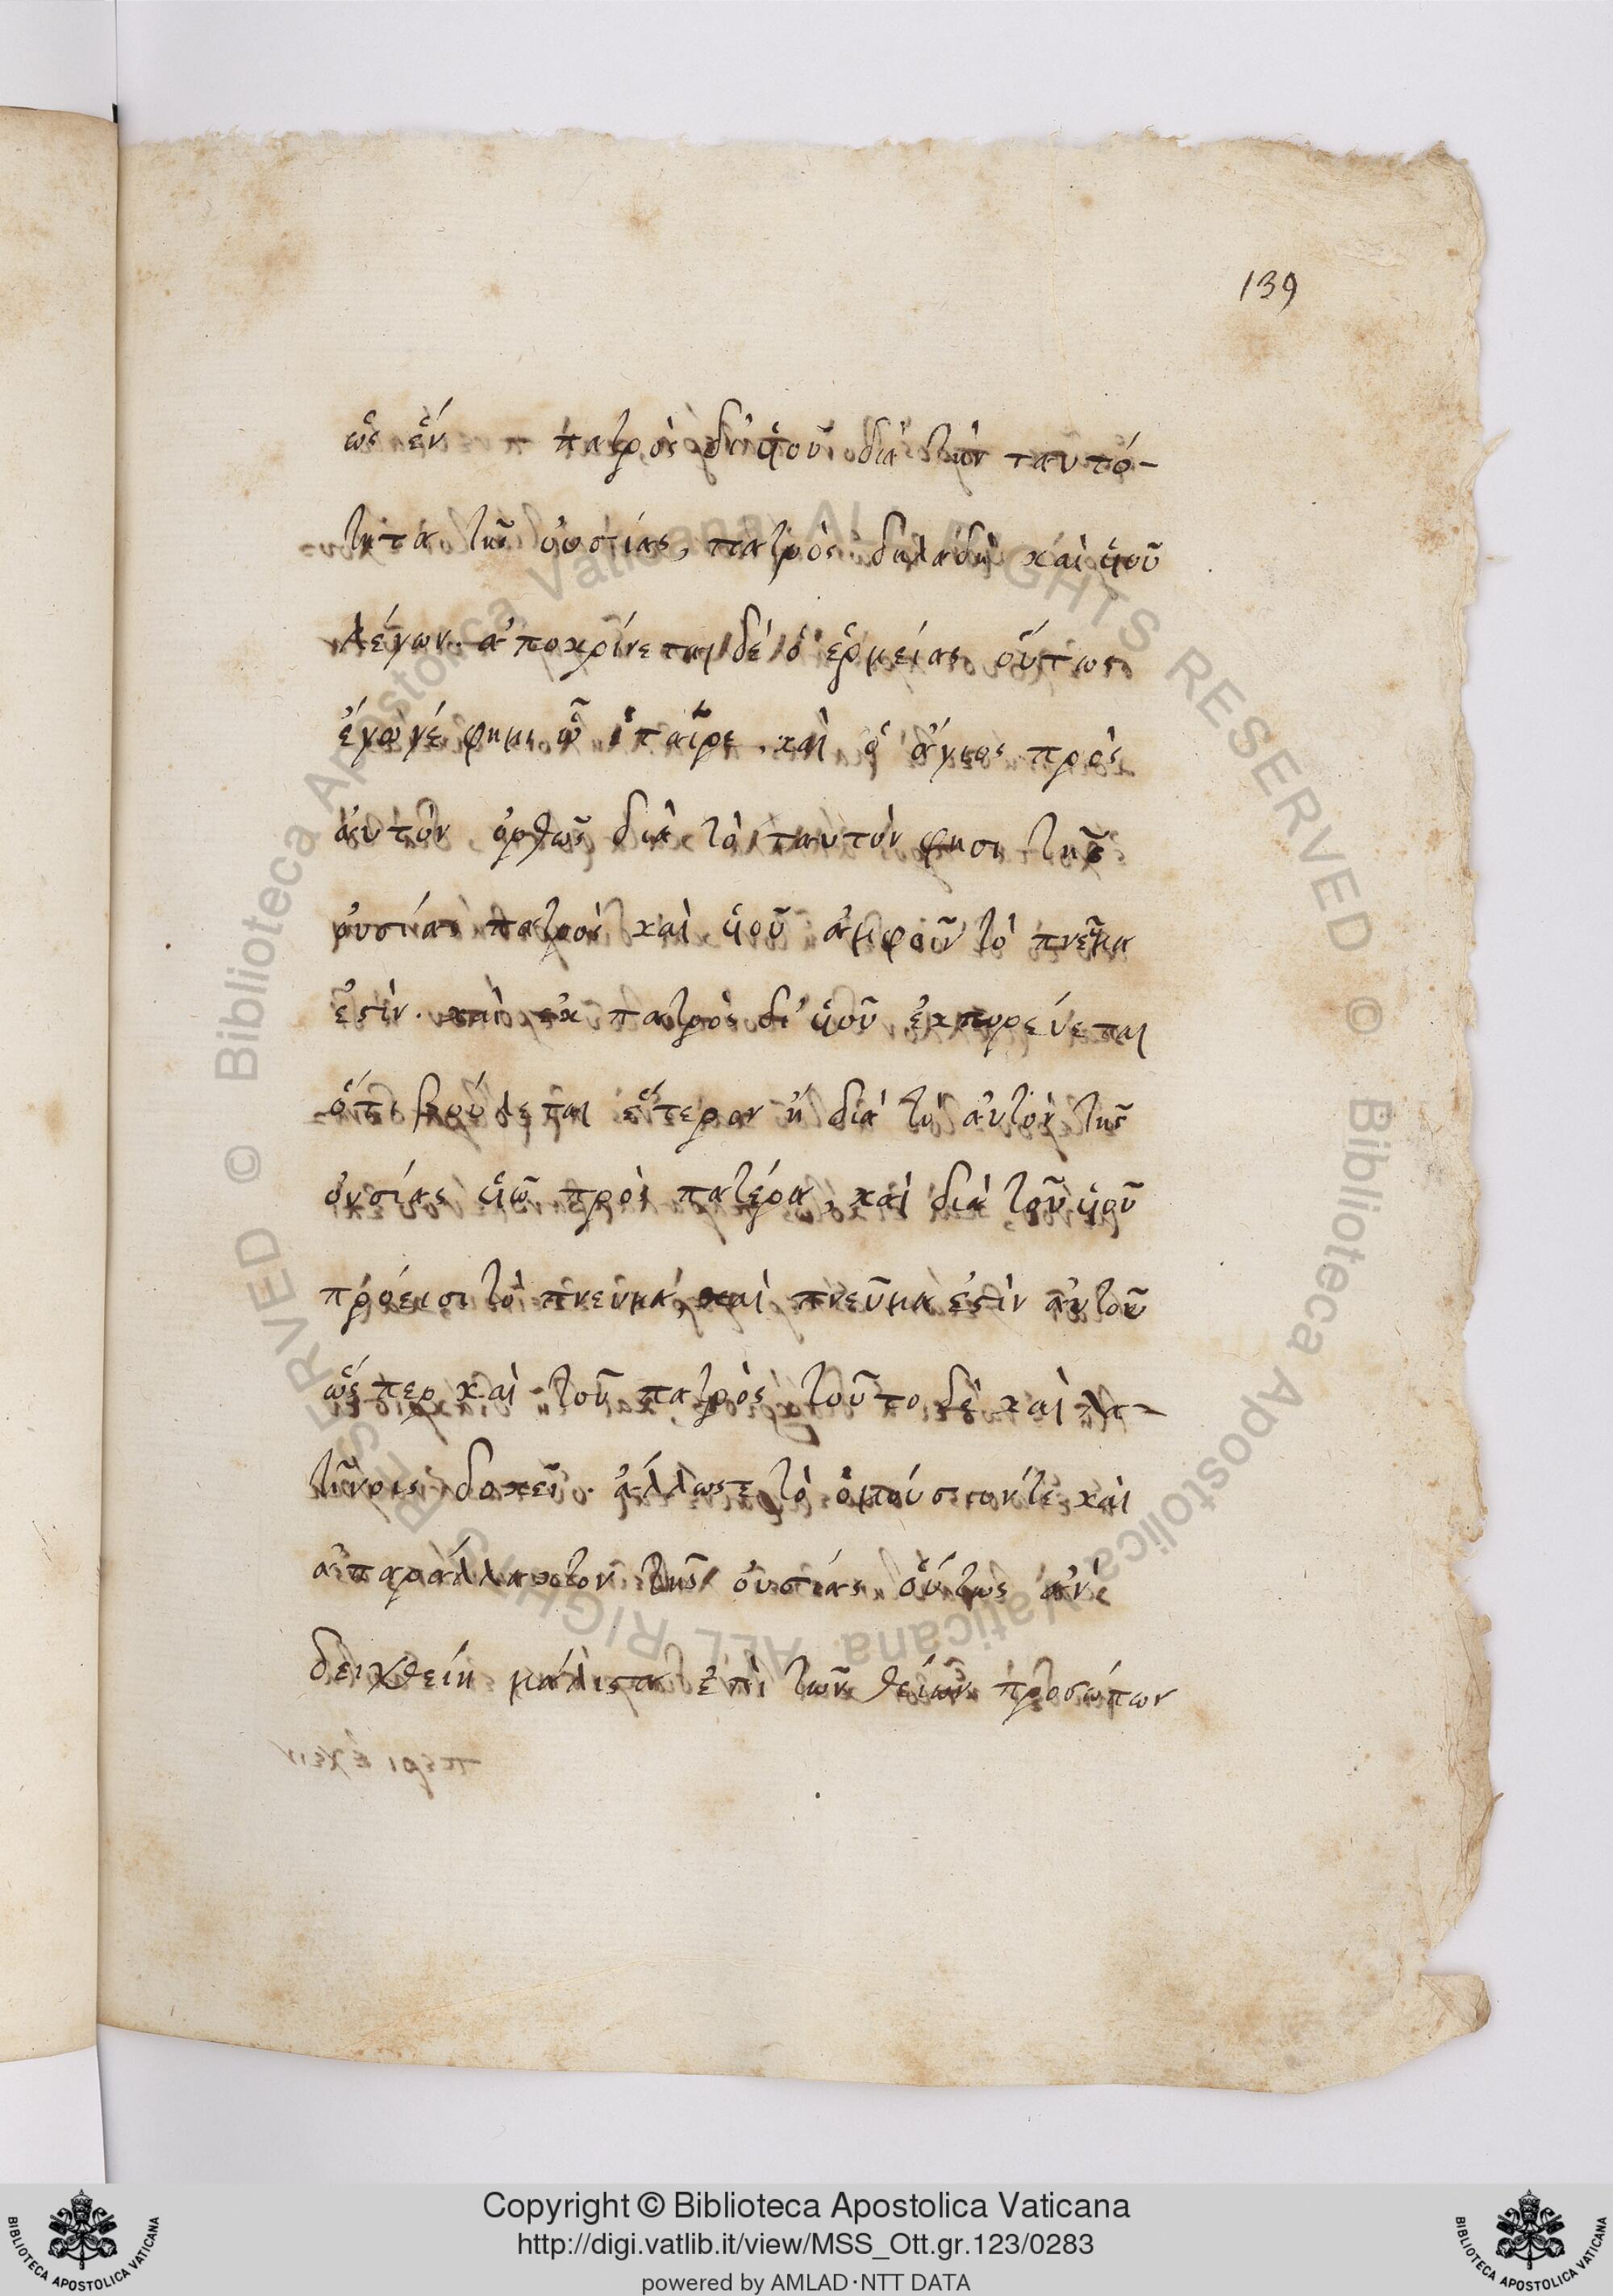 139
ὡς ἓν πατρὸς δι' ὑιοῦ διὰ τὴν ταυτό-
τητα τῆς οὐσίας, πατρὸς δηλαδὴ καὶ ὑιοῦ
λέγων. ἀποκρίνεται δὲ ὁ ἑρμείας οὕτως
ἐγώγέ φημι ὦ ἑταῖρε. καὶ ὁ ἅγιος πρὸς
ἀυτὸν ὀρθῶς διὰ τὸ ταυτὸν φησι τῆς
οὐσίας πατρὸς καὶ ὑιοῦ ἀμφοῖν τὸ πνεῦμα
ἐστὶν. καὶ ἐκ πατρὸς δι' ὑιοῦ ἐκπορέυεται
ὅτι βούλεται ἕτερον ἢ διὰ τὸ αὐτὸν τῆς
οὐσίας ὑιῶ πρὸς πατέρα, καὶ διὰ τοῦ ὑιοῦ
πρόεισι τὸ πνεῦμα, καὶ πνεῦμα ἐστὶν ἀυτοῦ
ὥσπερ καὶ τοῦ πατρὸς τοῦτο δὲ καὶ λα-
τῖνοις δοκεῖ. ἄλλωστε τὸ ὁμοούσιόντε καὶ
ἀπαράλλακτον τῆς οὐσίας οὕτως ἀν
δειχθείη μάλιστα ἐπὶ τῶν θείων προσώπων
Copyright © Biblioteca Apostolica Vaticana
http://digi.vatlib.it/view/MSS_Ott.gr.123/0283
powered by AMLAD·NTT DATA
BIBLIOTECA APOSTOLICA VATICANA
BIBLIOTECA APOSTOLICA VATICANA
© Biblioteca Apostolica Vaticana ALL RIGHTS RESERVED © Biblioteca Apostolica Vaticana ALL RIGHTS RESERVED